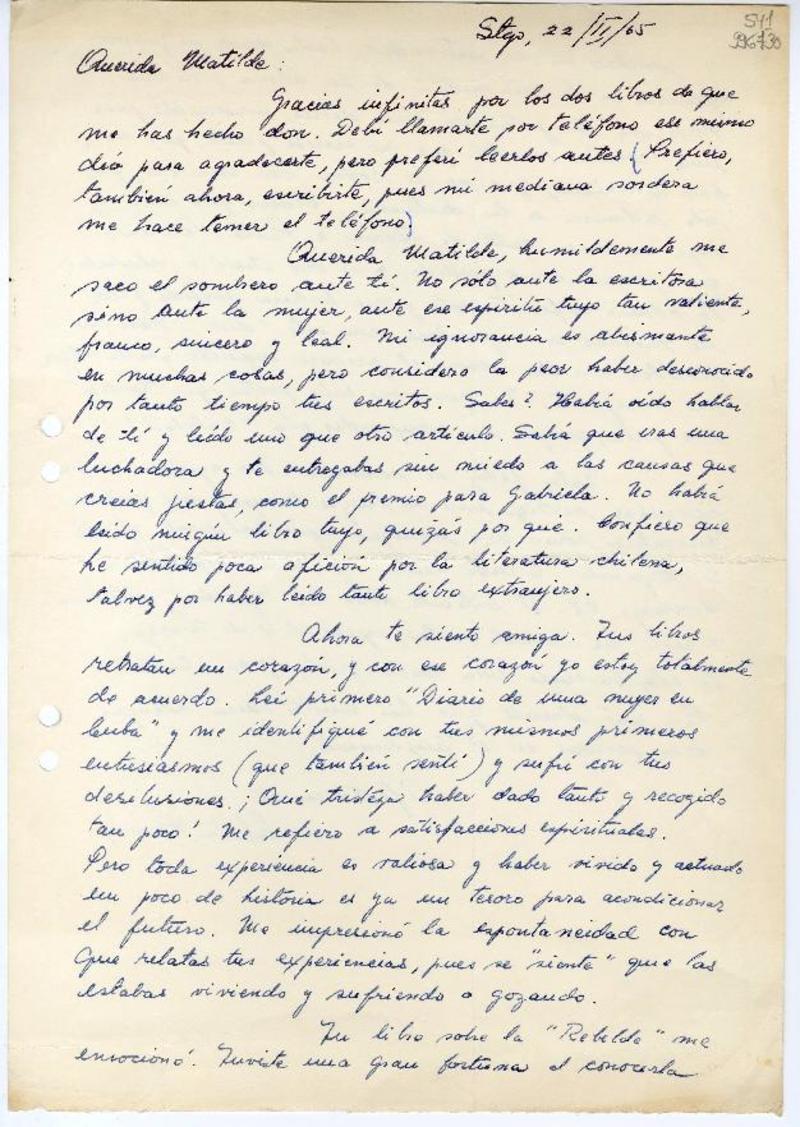 541
396730
Stgo, 22/II/65
Querida Matilde:
Gracias infinitas por los dos libros de que
me has hecho don. Debí llamarte por teléfono ese mismo
día para agradecerte, pero preferí leerlos antes (Prefiero,
también ahora, escribirte, pues mi mediana sordera
me hace temer el teléfono)
Querida Matilde, humildemente me
saco el sombrero ante tí. No sólo ante la escritora
sino ante la mujer, ante ese espíritu tuyo tan valiente,
franco, sincero y leal. Mi ignorancia es abismante
en muchas cosas, pero considero la peor haber desconocido
por tanto tiempo tus escritos. Sabes? Había oído hablar
de tí y leído uno que otro artículo. Sabía que eras una
luchadora y te entregabas sin miedo a las causas que
creías justas, como el premio para Gabriela. No había
leído ningún libro tuyo, quizás por qué. Confieso que
he sentido poca afición por la literatura chilena,
talvez por haber leído tanto libro extranjero.
Ahora te siento amiga. Tus libros
retratan un corazón, y con ese corazón yo estoy totalmente
de acuerdo. Leí primero "Diario de una mujer en
Cuba" y me identifiqué con tus mismos primeros
entusiasmos (que también sentí) y sufrí con tus
desilusiones. ¡Qué tristeza haber dado tanto y recogido
tan poco! Me refiero a satisfacciones espirituales.
Pero toda experiencia es valiosa y haber vivido y actuado
un poco de historia es ya un tesoro para acondicionar
el futuro. Me impresionó la espontaneidad con
que relatas tus experiencias, pues se "siente" que las
estabas viviendo y sufriendo o gozando.
Tu libro sobre la "Rebelde" me
emocionó. Tuviste una gran fortuna al conocerla